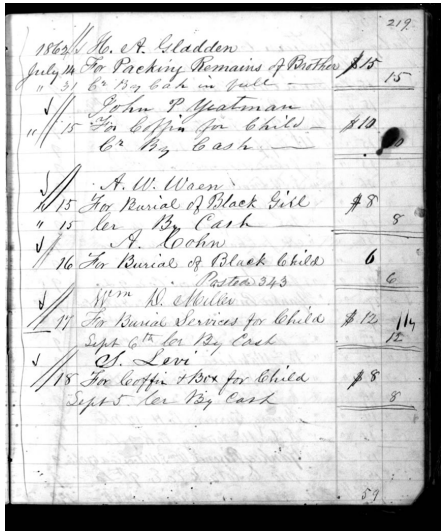 219.
1862 H. A. Gladden
July 14 For Packing Remains of Brother $15
" 31 Cr By Cash in full 15
John P Yeatman
" 15 For Coffin for Child $10
Cr By Cash
A. W. Waen
15 For Burial of Black Girl $8
" 15 Cer By Cash 8
A. Cohn
16 For Burial of Black Child 6
Posted 343 6
Wm D. Miller
17 For Burial Services for Child $12
Sept 6th Cer By Cash 12
S. Levi
18 For Coffin & Box for Child $8
Sept 5 Cer By Cash 8
59